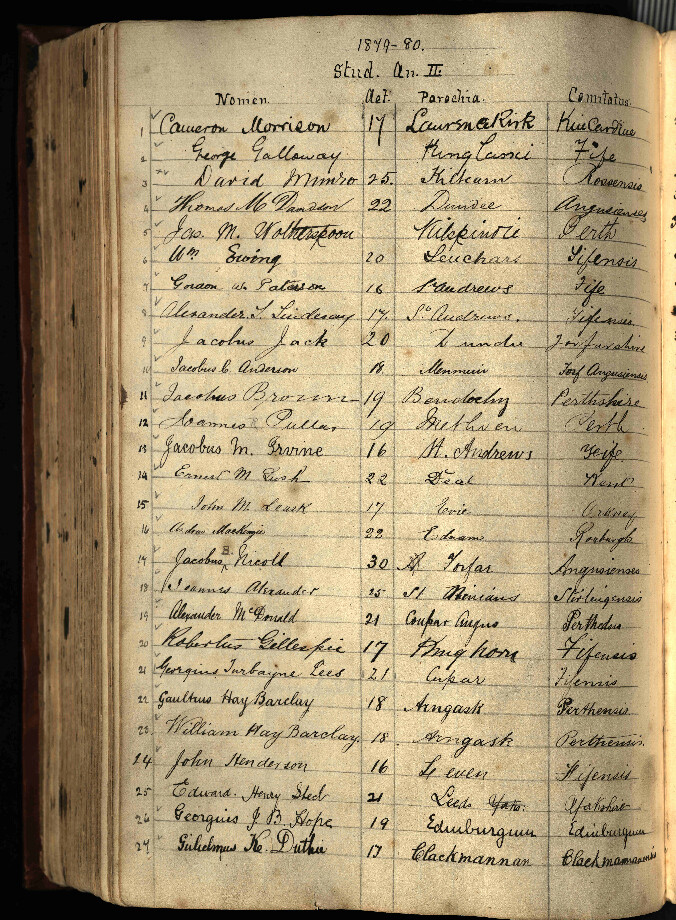 1879-80.
Stud. An. II.
Nomen. Aet. Parochia. Comitatus.
1 Cameron Morrison 17 Laurencekirk Kincardine
2 George Galloway Kinglassie Fife
3 David Munro 25. Kiltearn Rossensis
4 Thomas M Davidson 22 Dundee Angusiensis
5 Jas. M. Wotherspoon Kilspindie Perth
6 Wm Ewing 20 Leuchars Fifensis
7 Gordon W. Paterson 16 St Andrews Fife
8 Alexander T. Lindesay 17. St Andrews. Fifensis
9 Jacobus Jack 20 Dundee Forfarshire
10 Jacobus C. Anderson 18 Menmuir Forf Angusiensis
11 Jacobus Brown 19 Bendochy Perthshire
12 Joannes Pullar 19 Methven Perth
13 Jacobus M. Irvine 16 St. Andrews Feife
14 Ernest M 22 Deal Kent
15 John M. Leask 17 Evie Orkney
16 Andrew MacKenzie 22 Ednam Roxburgh
17 Jacobus B. Nicoll 30 Forfar Angusienses
18 Joannes Alexander 25 St. Ninians Stirlingensis
19 Alexander McDonald 21 Coupar Angus Perthensis
20 Robertus Gillespie 17 Kinghorn Fifensis
21 Georgius Turbayne Lees 21 Cupar Fifensis
22 Gaultrus Hay Barclay 18 Arngask Perthensis
23 William Hay Barclay. 18. Arngask Perthensis.
24 John Henderson 16 Leven Fifensis
25 Edward Henry Steel 21 Leeds Yorkshire
26 Georgius J B Hope 19 Edinburgum Edinburgum
27 Gulielmus K. Duthie 17 Clackmannan Clackmannanensis